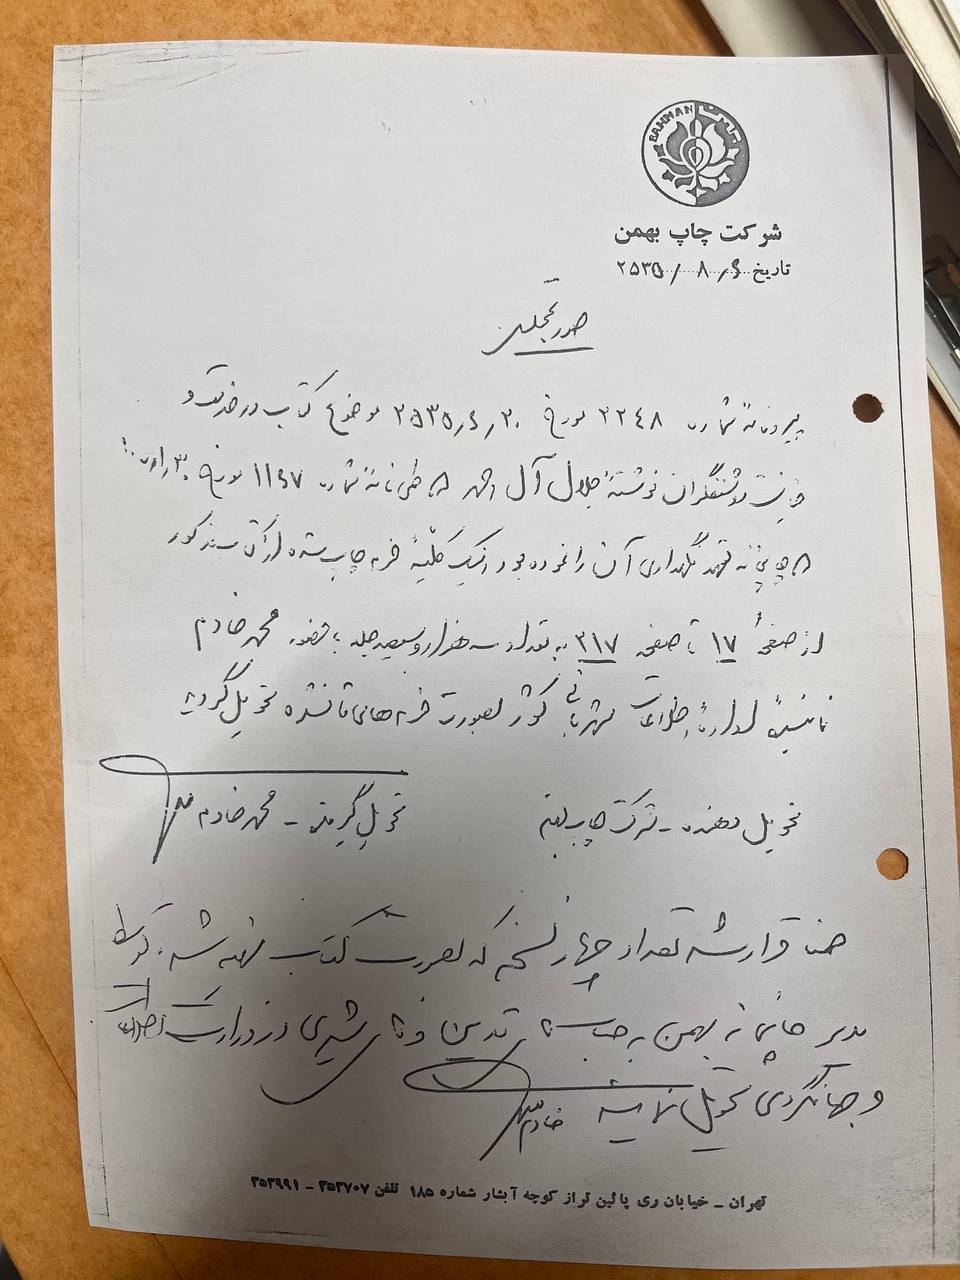 BAHMAN بهمن
شرکت چاپ بهمن
تاریخ ۲۵۳۵/۸/۶
صورتمجلس
پیرو نامهٔ شماره ۲۲۴۸ مورخ ۲۵۳۵/۶/۲۰ موضوع کتاب در خدمت و
خیانت روشنفکران نوشتهٔ جلال آل احمد که طی نامه شماره ۱۱۴۷ مورخ
که چاپخانه تعهد نگهداری آن را نموده بود اینک کلیهٔ فرم چاپ شده از کتاب مذکور
از صفحهٔ ۱۷ تا صفحه ۳۱۷ به تعداد سه هزار و سیصد جلد با حضور محمد خادم
نمایندهٔ ادارهٔ اطلاعات شهربانی کشور بصورت فرم‌های تا نشده تحویل گردید
تحویل دهنده - شرکت چاپ بهمن
تحویل گیرنده - محمد خادم
ضمنا قرار شد تعداد چهار نسخه که بصورت کتاب تهیه شده توسط
مدیر چاپخانه بهمن به جناب آقای تدین و آقای شیری در وزارت اطلاعات
و جهانگردی تحویل نمایند خادم
تهران - خیابان ری پائین تر از کوچه آبشار شماره ۱۸۵ تلفن ۳۵۲۷۰۷ - ۳۵۲۹۹۱